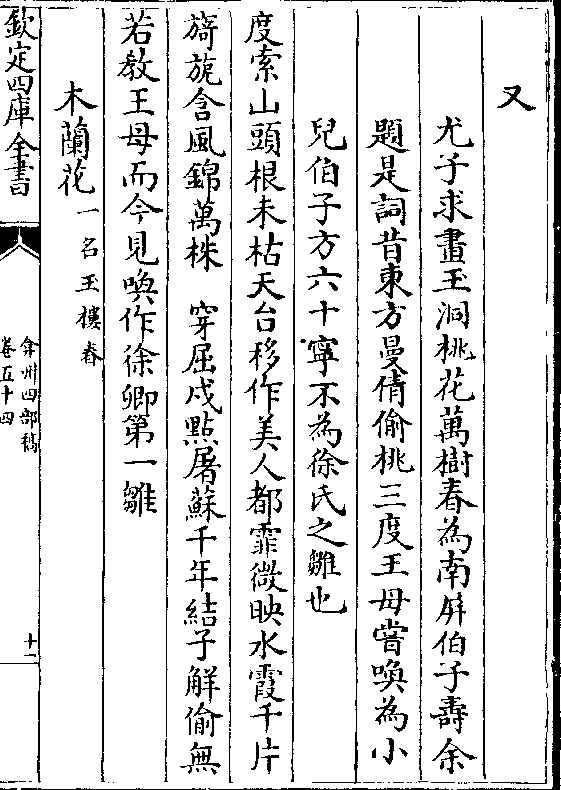 又
尤子求畫玉洞桃花萬樹春為南屏伯子壽余
題是詞昔東方曼倩偷桃三度王母嘗喚為小
兒伯子方六十寧不為徐氏之雛也
度索山頭根未枯天台移作美人都霏微映水霞千片
旖旎含風錦萬株 穿屈戍點屠蘇千年結子解偷無
若教王母而今見喚作徐卿第一雛
木蘭花一名玉樓春
欽定四庫全書
弇州四部稿
卷五十四
十二